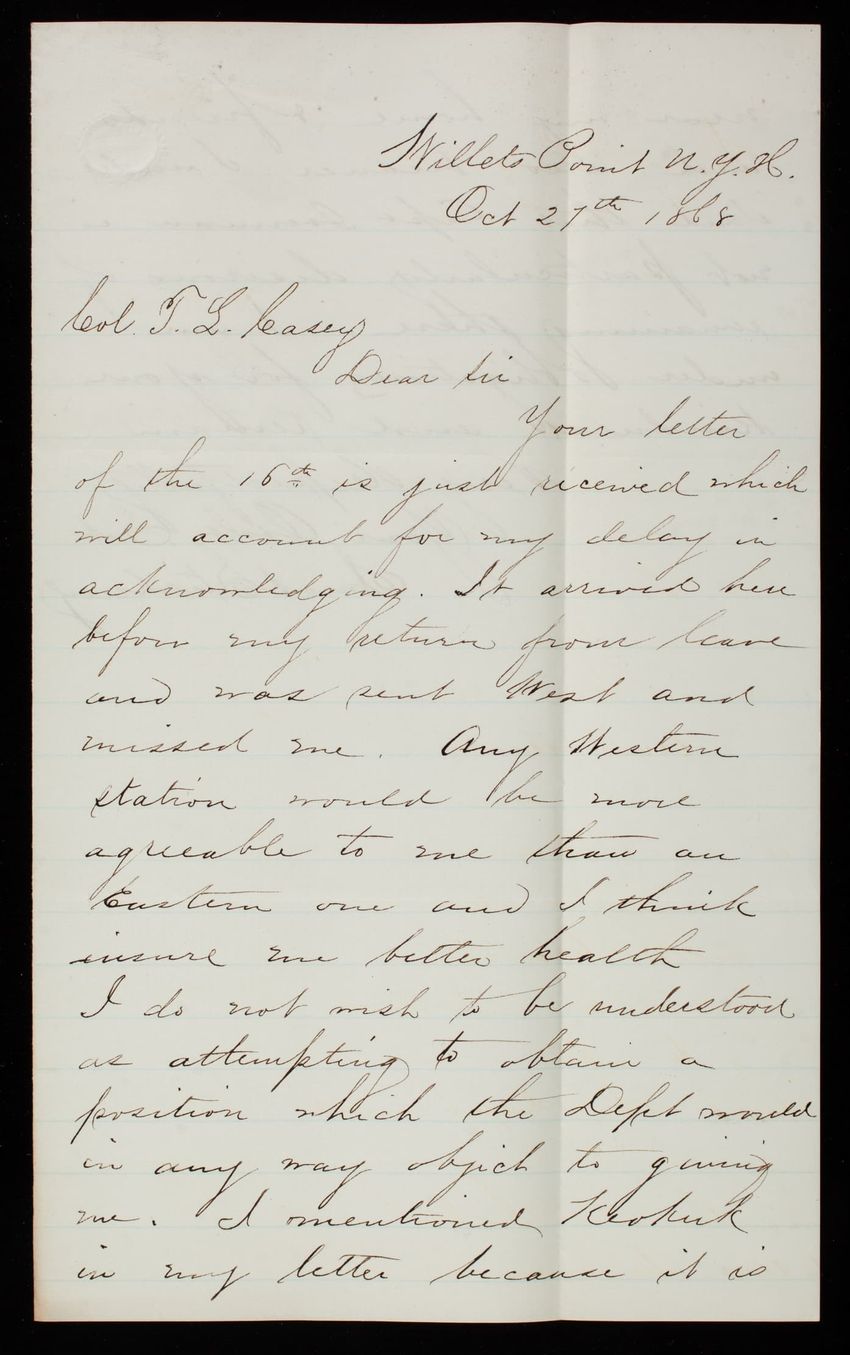 Willets Point N.Y.H.
Oct 27th 1868
Col. T. L. Casey
Dear Sir
Your letter
of the 16th is just received which
will account for my delay in
acknowledging. It arrived here
before my return from leave
and was sent West and
missed me. Any Western
station would be more
agreeable to me than an
Eastern one and I think
insure me better health
I do not wish to be understood
as attempting to obtain a
position which the Dept would
in any way object to giving
me. I mentioned Keokuk
in my letter because it is